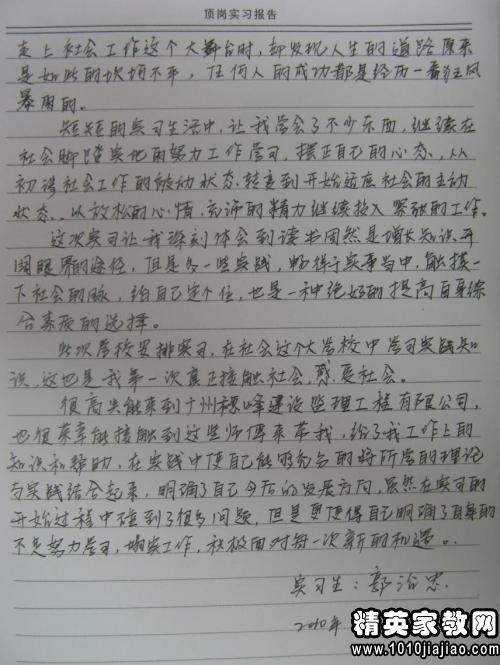 顶岗实习报告
走上社会工作这个大舞台时，却发现人生的道路原来
是如此的坎坷不平，任何人的成功都是经历一番狂风
暴雨的。
短短的实习生活中，让我学会了不少东西，继续在
社会脚踏实地的努力工作学习，摆正自己的心态，从
初涉社会工作的被动状态转变到开始适应社会的主动
状态。以放松的心情，充沛的精力继续投入紧张的工作。
这次实习让我深刻体会到读书固然是增长知识开
阔眼界的途径，但是多一些实践，畅徉于实事当中，触摸一
下社会的脉，给自己定个位，也是一种绝好的提高自身综
合素质的选择。
此次学校安排实习，在社会这个大学校中学习实践知
识，这也是我第一次真正接触社会，感受社会。
很高兴能来到广州穗峰建设监理工程有限公司，
也很荣幸能接触到这些师傅来带我，给了我工作上的
知识和帮助，在实践中使自己能够充分的将所学的理论
与实践结合起来，明确了自己今后的发展方向，虽然在实习的
开始过程中碰到了很多问题，但是更使得自己明确了自身的
不足努力学习，踏实工作，积极面对每一次新的机遇。
实习生：郭治忠
2010年
精英家教网
www.1010jiajiao.com